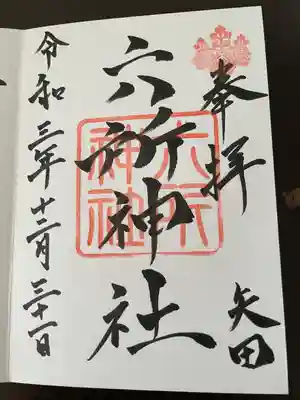 奉拝
矢田
六所神社
六所神社
令和三年十二月三十一日